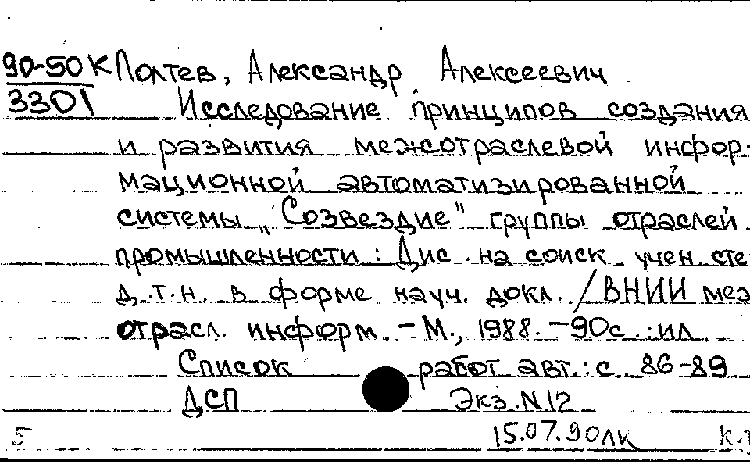 90-50К Полтев, Александр Алексеевич
3301 Исследование принципов создания
и развития межотраслевой инфор-
мационной автоматизированной
системы „Созвездие" группы отраслей
промышленности : Дис. на соиск. учен. сте
д.т.н. в форме науч. докл. / ВНИИ меж
отрасл. информ. - М., 1988. - 90с. : ил
Список работ авт.: с. 86-89
ДСП Экз. N12
5 15.07.90лк к.